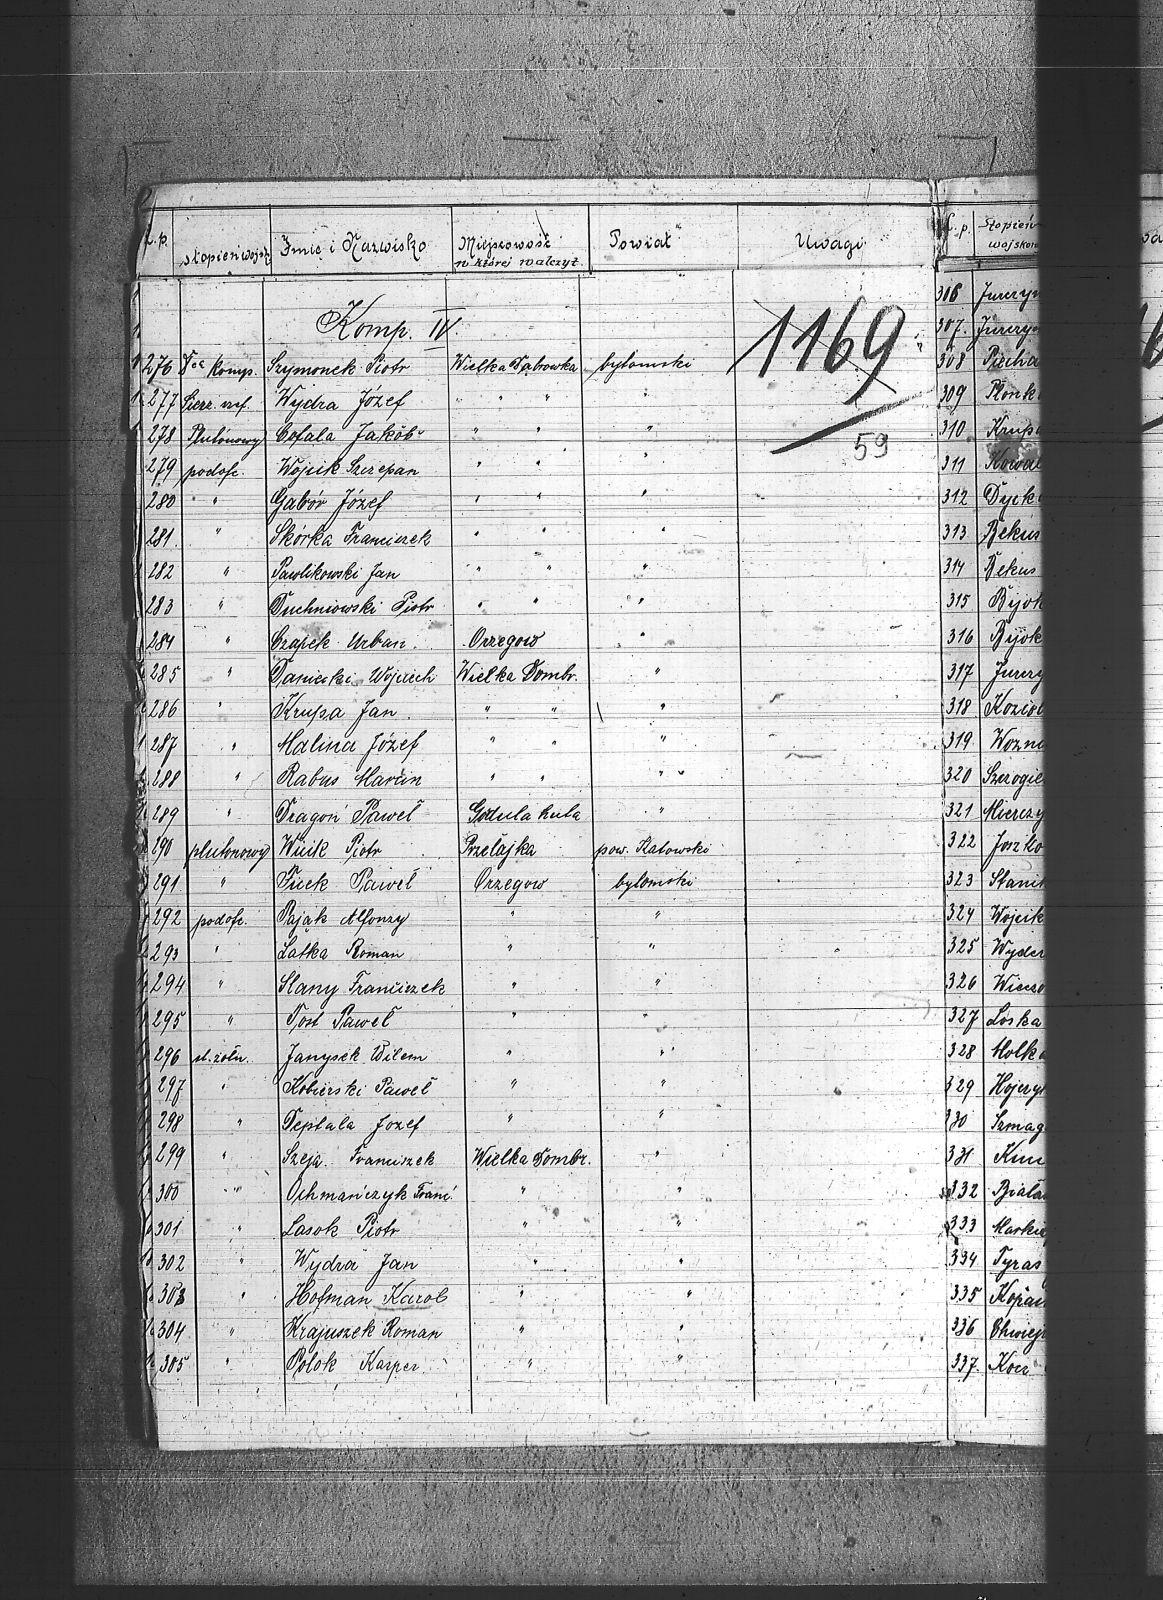 L.p. stopień wojsk. Imię i Nazwisko Miejscowość w której walczył Powiat Uwagi
Komp. IV.
1169
59
276 Dca Komp. Szymonek Piotr Wielka Dąbrowka bytomski
277 Sierż. szf. Wydra Józef " " "
278 Plutonowy Cofala Jakób " " "
279 podofc. Wojcik Szczepan " " "
280 " Gabór Józef " " "
281. " Skórka Franciszek " " "
282 " Pawlikowski Jan " " "
283 " Duchniowski Piotr " " "
284 " Czapek Urban. Orzegow "
285 " Daniecki Wojciech Wielka Dombr. "
286 " Krupa Jan. " " "
287 " Malina Józef " " "
288 " Rabus Marcin " " "
289 " Dragoń Paweł Godula huta "
290 plutonowy Wicik Piotr Przełajka pow. Katowski
291 " Fuck Paweł Orzegow bytomski
292 podofc. Pająk Alfonzy " "
293 " Latka Roman " "
294 " Slany Franciszek " "
295 " Tost Paweł " "
296 st. żołn. Janysek Wilem " "
297 " Kobierski Paweł " "
298 " Deptala Jozef " "
299 " Szeja. Franciszek Wielka Dombr. "
300 " Ochmańczyk Franc. " "
301 " Lasok Piotr " "
302 " Wydra Jan " "
303 " Hofman Karol " "
304 " Krajuszek Roman " "
305 " Polok Kasper " "
L.p. Stopień wojskow
306 Jurczy
307. Jurczy
308 Piecha
309 Plonk
310 Krup
311 Kowal
312 Dyck
313 Bekus
314 Bekus
315 Byok
316 Byok
317 Jurczy
318 Kozio
319 Wozn
320 Szrogie
321 Mierczy
322 Joszko
323 Stani
324 Wojcik
325 Wyder
326 Wieczo
327 Loska
328 Molk
329 Hojczy
330 Szmag
331
332 Biala
333 Markie
334 Tyras
335 Kopa
336 Chwiej
337. Kocz